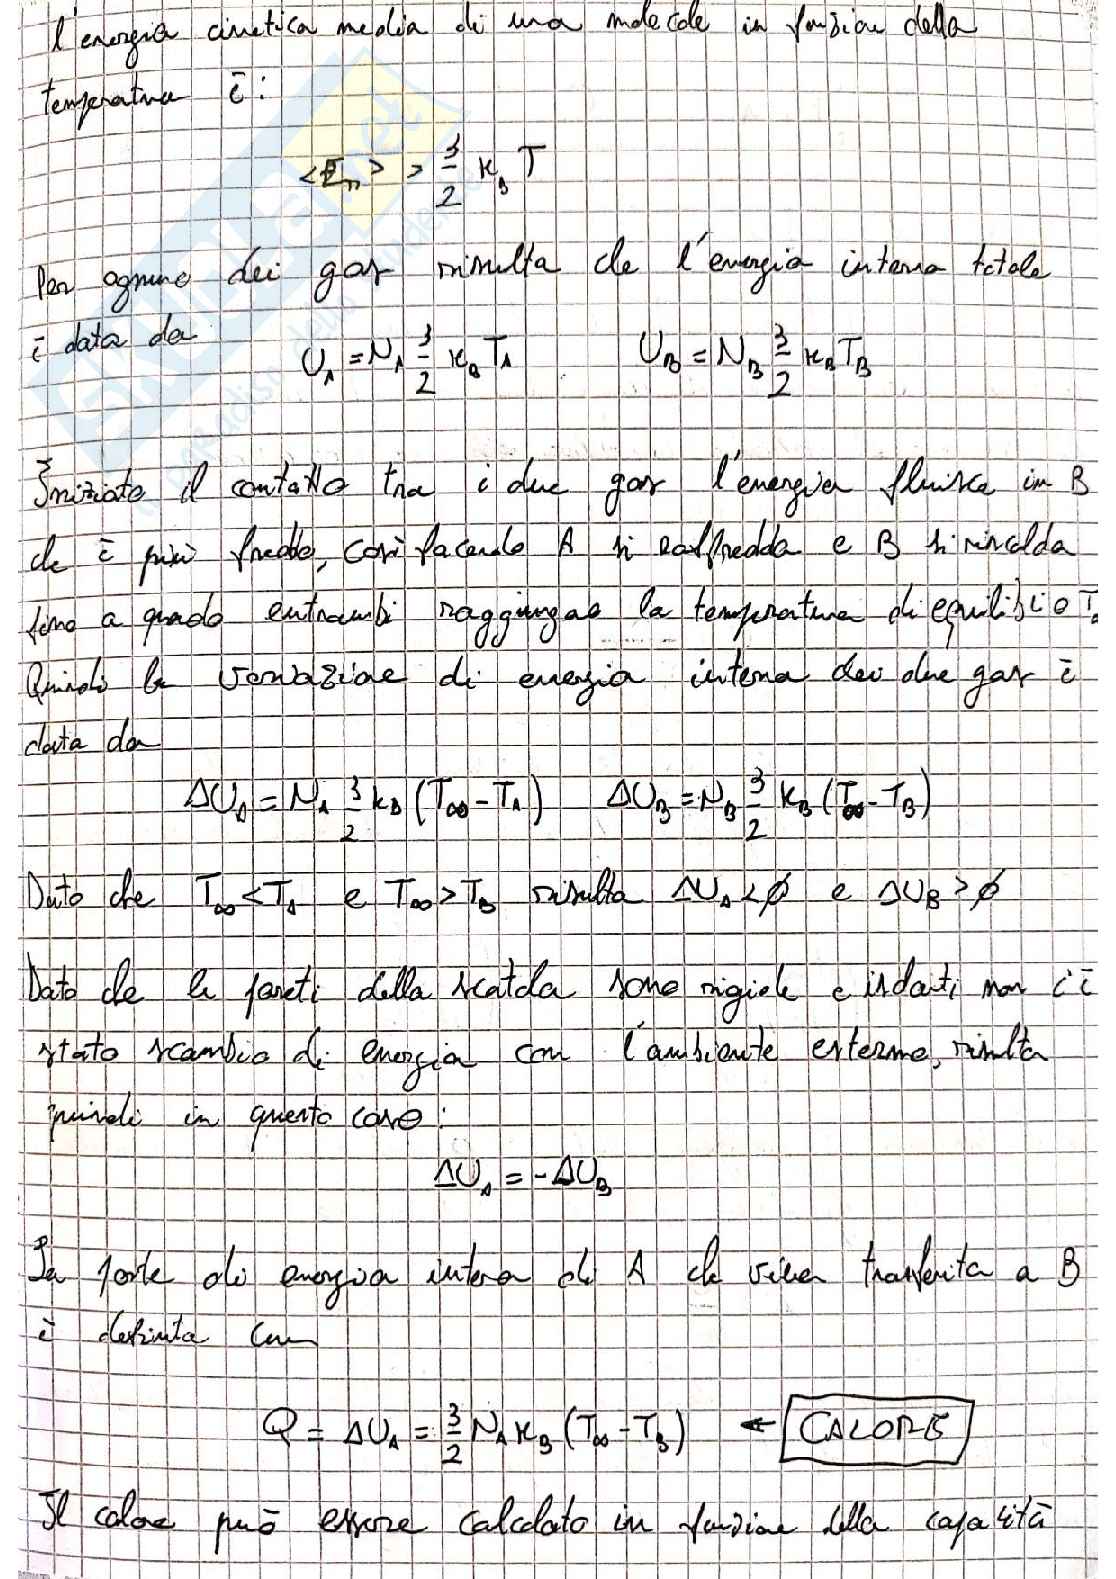 l'energia cinetica media di una molecole in funzion della
temperatura è:
<En> > 3/2 K_B T
Per ognuno dei gas risulta che l'energia interna totale
è data da U_A = N_A 3/2 K_B T_A U_B = N_B 3/2 K_B T_B
Iniziato il contatto tra i due gas l'energia fluisce in B
che è più freddo, così facendo A si raffredda e B si riscalda
fino a quado entrambi raggiungao la temperatura di equilibrio T
Quindi la variazione di energia interna dei due gas è
data da
ΔU_A = N_A 3/2 k_B (T_∞ - T_A) ΔU_B = N_B 3/2 k_B (T_∞ - T_B)
Dato che T_∞ < T_A e T_∞ > T_B risulta ΔU_A < ∅ e ΔU_B > ∅
Dato che le pareti della scatola sono rigide e isolanti non c'è
stato scambio di energia con l'ambiente esterno, risulta
quindi in questo caso:
ΔU_A = - ΔU_B
La parte di energia interna di A che viene trasferita a B
è definita com
Q = ΔU_A = 3/2 N_A K_B (T_∞ - T_B) ← CALORE
Il calore può essere calcolato in funzione della capacità